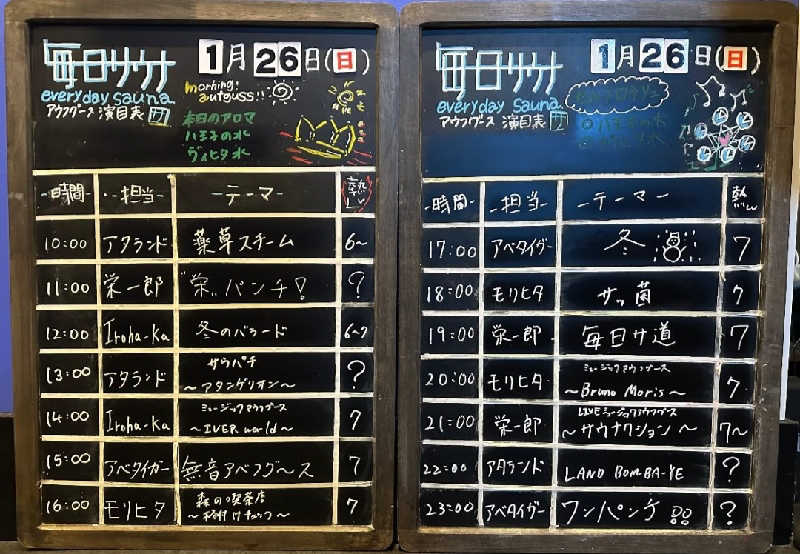 毎日サウナ
everyday sauna
アウフグース 演目表
1月26日(日)
morning!
aufguss!!
本日のアロマ
八王子の水
ヴィヒタ水
時間 担当 テーマ 熱い
10:00 アタランド 薬草スチーム 6~
11:00 栄一郎 "栄"パンチ! ?
12:00 Iroha-Ka 冬のバラード 6~7
13:00 アタランド サウパチ ?
~アタンゲリオン~
14:00 Iroha-Ka ミュージックアウフグース 7
~UVER world~
15:00 アベタイガー 無音アベフグース 7
16:00 モリヒタ 森の喫茶店 7
毎日サウナ
everyday sauna
アウフグース 演目表
1月26日(日)
時間 担当 テーマ 熱い
17:00 アベタイガー 冬 7
18:00 モリヒタ サッ菌 7
19:00 栄一郎 毎日サ道 7
20:00 モリヒタ ミュージックアウフグース 7
~Bruno Moris~
21:00 栄一郎 LIVEミュージックアウフグース 7~
~サウナクション~
22:00 アタランド LAND BOMBA-YE ?
23:00 アベタイガー ワンパンチ ?